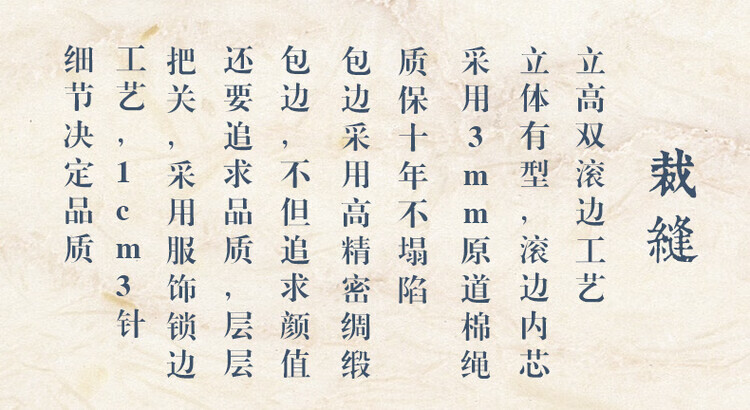 裁縫
立高双滚边工艺
立体有型,滚边内芯
采用3mm原道棉绳
质保十年不塌陷
包边采用高精密绸缎
包边,不但追求颜值
还要追求品质,层层
把关,采用服饰锁边
工艺,1cm3针
细节决定品质